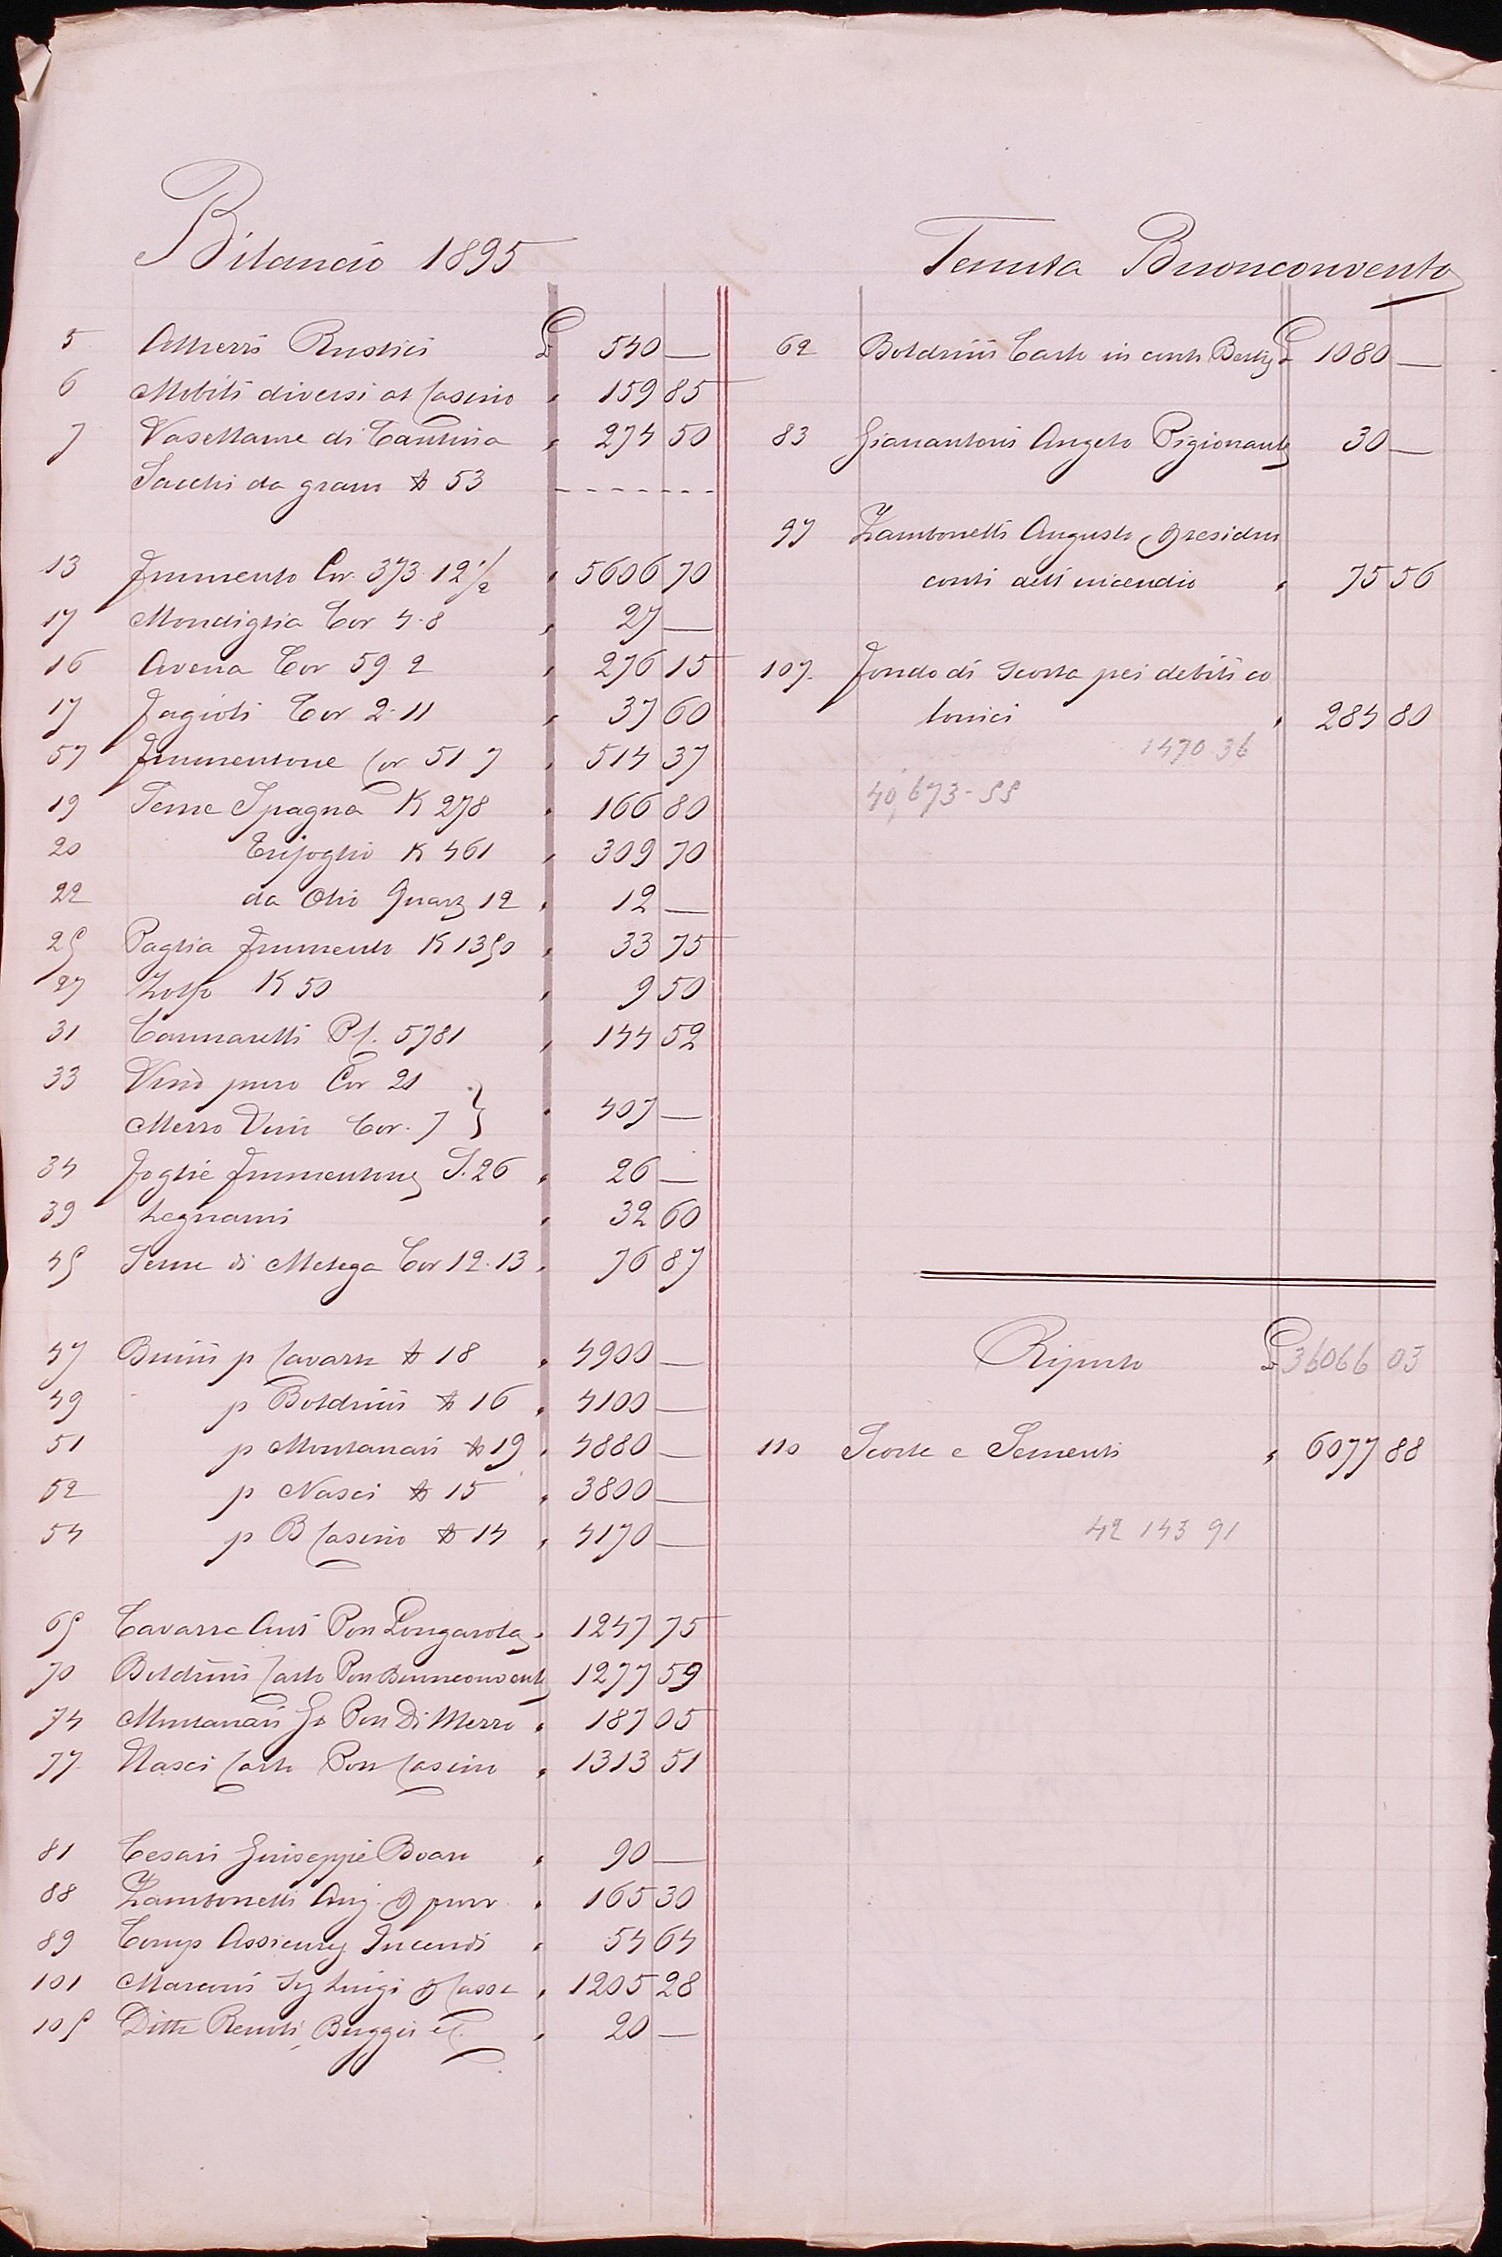 Bilancio 1895
5 Attrezzi Rustici £ 540 —
6 Mobili diversi al Casino " 159 85
7 Vasellame di Cantina " 274 50
Sacchi da grano N 53 - - - - - - -
13 Frumento Cor. 373. 12 1/2 " 5606 70
17 Mondiglia Cor 4.8 " 27 —
16 Avena Cor 59 2 " 276 15
17 Fagioli Cor 2.11 " 37 60
57 Frumentone Cor 51 7 " 514 37
19 Seme Spagna K 278 " 166 80
20 Trifoglio K 461 " 309 70
22 da Olio Quarz 12 " 12 —
25 Paglia Frumento K 1350 " 33 75
27 Zolfo K 50 " 9 50
31 Cannarelli P.f. 5781 " 144 52
33 Vino puro Cor 21
Mezzo Vino Cor. 7 } " 407 —
34 Foglie Frumentone S. 26 " 26 —
39 Legnami " 32 60
45 Seme di Melega Cor 12.13 " 76 87
47 Bovini p Cavazza N 18 " 4900 —
49 p Boldrini N 16 " 4100 —
51 p Montanari N 19 " 4880 —
52 p Nasci N 15 " 3800 —
54 p B Casino N 14 " 4170 —
65 Cavazza Ant Pon Longarola " 1247 75
70 Boldrini Carlo Pon Buonconvento 1277 59
74 Montanari Gs Pon Di Mezzo " 187 05
77 Nasci Carlo Pon Casino " 1313 51
81 Cesari Giuseppe Boaro " 90 —
88 Zambonelli Aug. " 165 30
89 Comp Assicuraz Incendi " 54 64
101 Sig Luigi " 1205 28
105 Ditta " 20 —
Tenuta Buonconvento
62 Boldrini Carlo in conto Bestie £ 1080 —
83 Gianantoni Angelo Pigionante 30 —
97 Zambonelli Augusto residuo
conti dell'incendio " 75 56
107 Fondo di Scorta pei debiti co
lonici " 284 80
1470 36
40,673-55
Riporto £ 36066 03
110 Scorte e Sementi " 6077 88
42 143 91